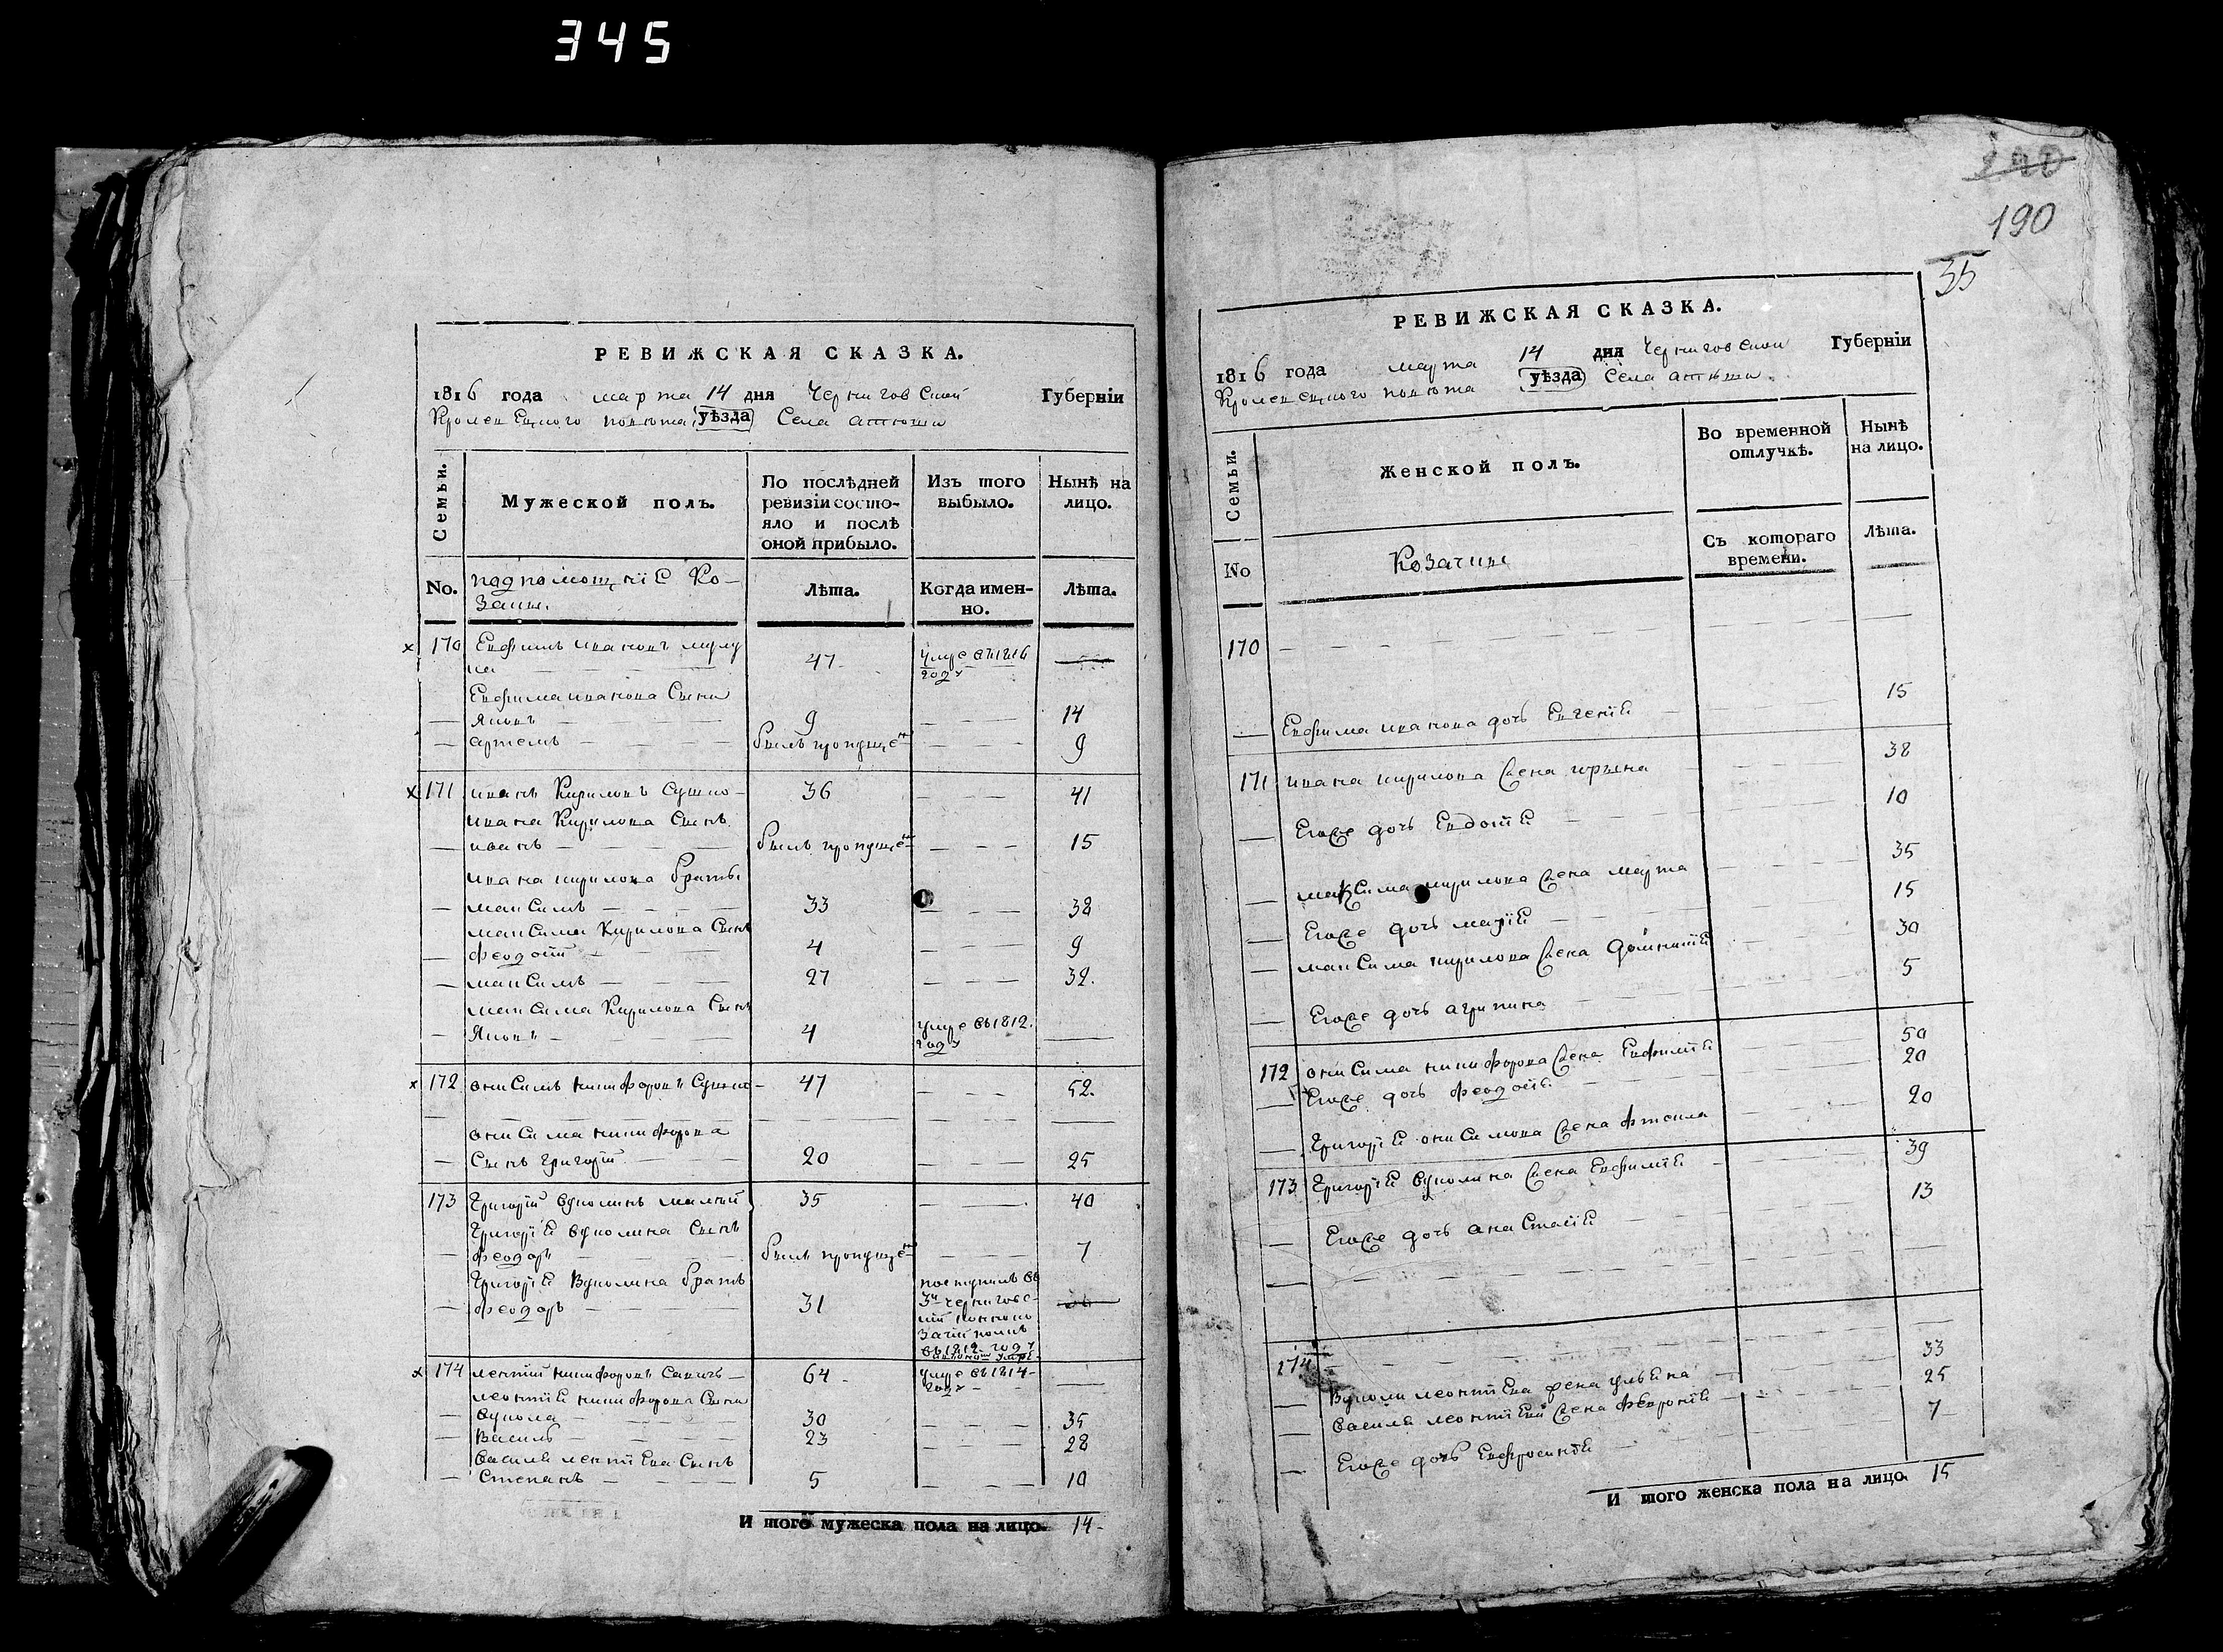 345
РЕВИЖСКАЯ СКАЗКА.
1816 года марта 14 дня Черниговской Губерніи
Кролевецкого повѣта уѣзда Села атюши
Семьи.
Мужеской полъ.
По послѣдней ревизіи состо-
яло и послѣ
оной прибыло.
Изъ того
выбыло.
Нынѣ на
лицо.
No.
подпомощніе Ко-
заки.
Лѣта.
Когда имен-
но.
Лѣта.
х 170 Евфимъ ивановъ 47 умре въ 1816
году
Евфима иванова Сыни
Яковъ 9 14
артемъ былъ пропущен 9
х 171 иванъ Кириловъ Сушко 36 41
ивана Кирилова Сынъ
иванъ былъ пропущен 15
ивана кирилова братъ
максимъ 33 38
максима Кирилова Сынъ
феодотъ 4 9
максимъ 27 32.
максима Кирилова Сынъ
Яковъ 4 умре въ 1812.
году
х 172 онисимъ никифоровъ Сушко 47 52.
онисима никифорова
Сынъ григорій 20 25
173 Григорій вуколинъ 35 40
Григорія вуколина Сынъ
феодоръ былъ пропущен 7
Григорія Вуколина братъ
феодоръ 31 поступилъ въ
3й черниговс-
кій конноко
зачій полкъ
въ 1812 году
х 174 леонтій никифоровъ 64 умре въ 1814
году
леонтія никифорова Сыни
вукола 30 35
Василь 23 28
василя леонтіева Сынъ
Степанъ 5 10
И того мужеска пола на лицо. 14
190
35
РЕВИЖСКАЯ СКАЗКА.
1816 года марта 14 дня Черниговской Губерніи
Кролевецкого повѣта уѣзда Села атюши
Семьи.
Женской полъ.
Во временной
отлучкѣ.
Нынѣ
на лицо.
No
Козачки
Съ котораго
времени.
Лѣта.
170
Евфима иванова дочь Евгенія 15
171 ивана кирилова жена ирына 38
Егоже дочь Евдокія 10
максима кирилова жена марта 35
Егоже дочь марія 15
максима кирилова жена 30
Егоже дочь агрипина 5
172 онисима никифорова жена Евфимія 50
Егоже дочь феодосія 20
Григорія онисимова жена 20
173 Григорія вуколина жена Евфимія 39
Егоже дочь анастасія 13
174
Вуколи леонтіева жена ульяна 33
василя леонтіева жена февронія 25
Егоже дочь Евфросинія 7
И того женска пола на лицо. 15